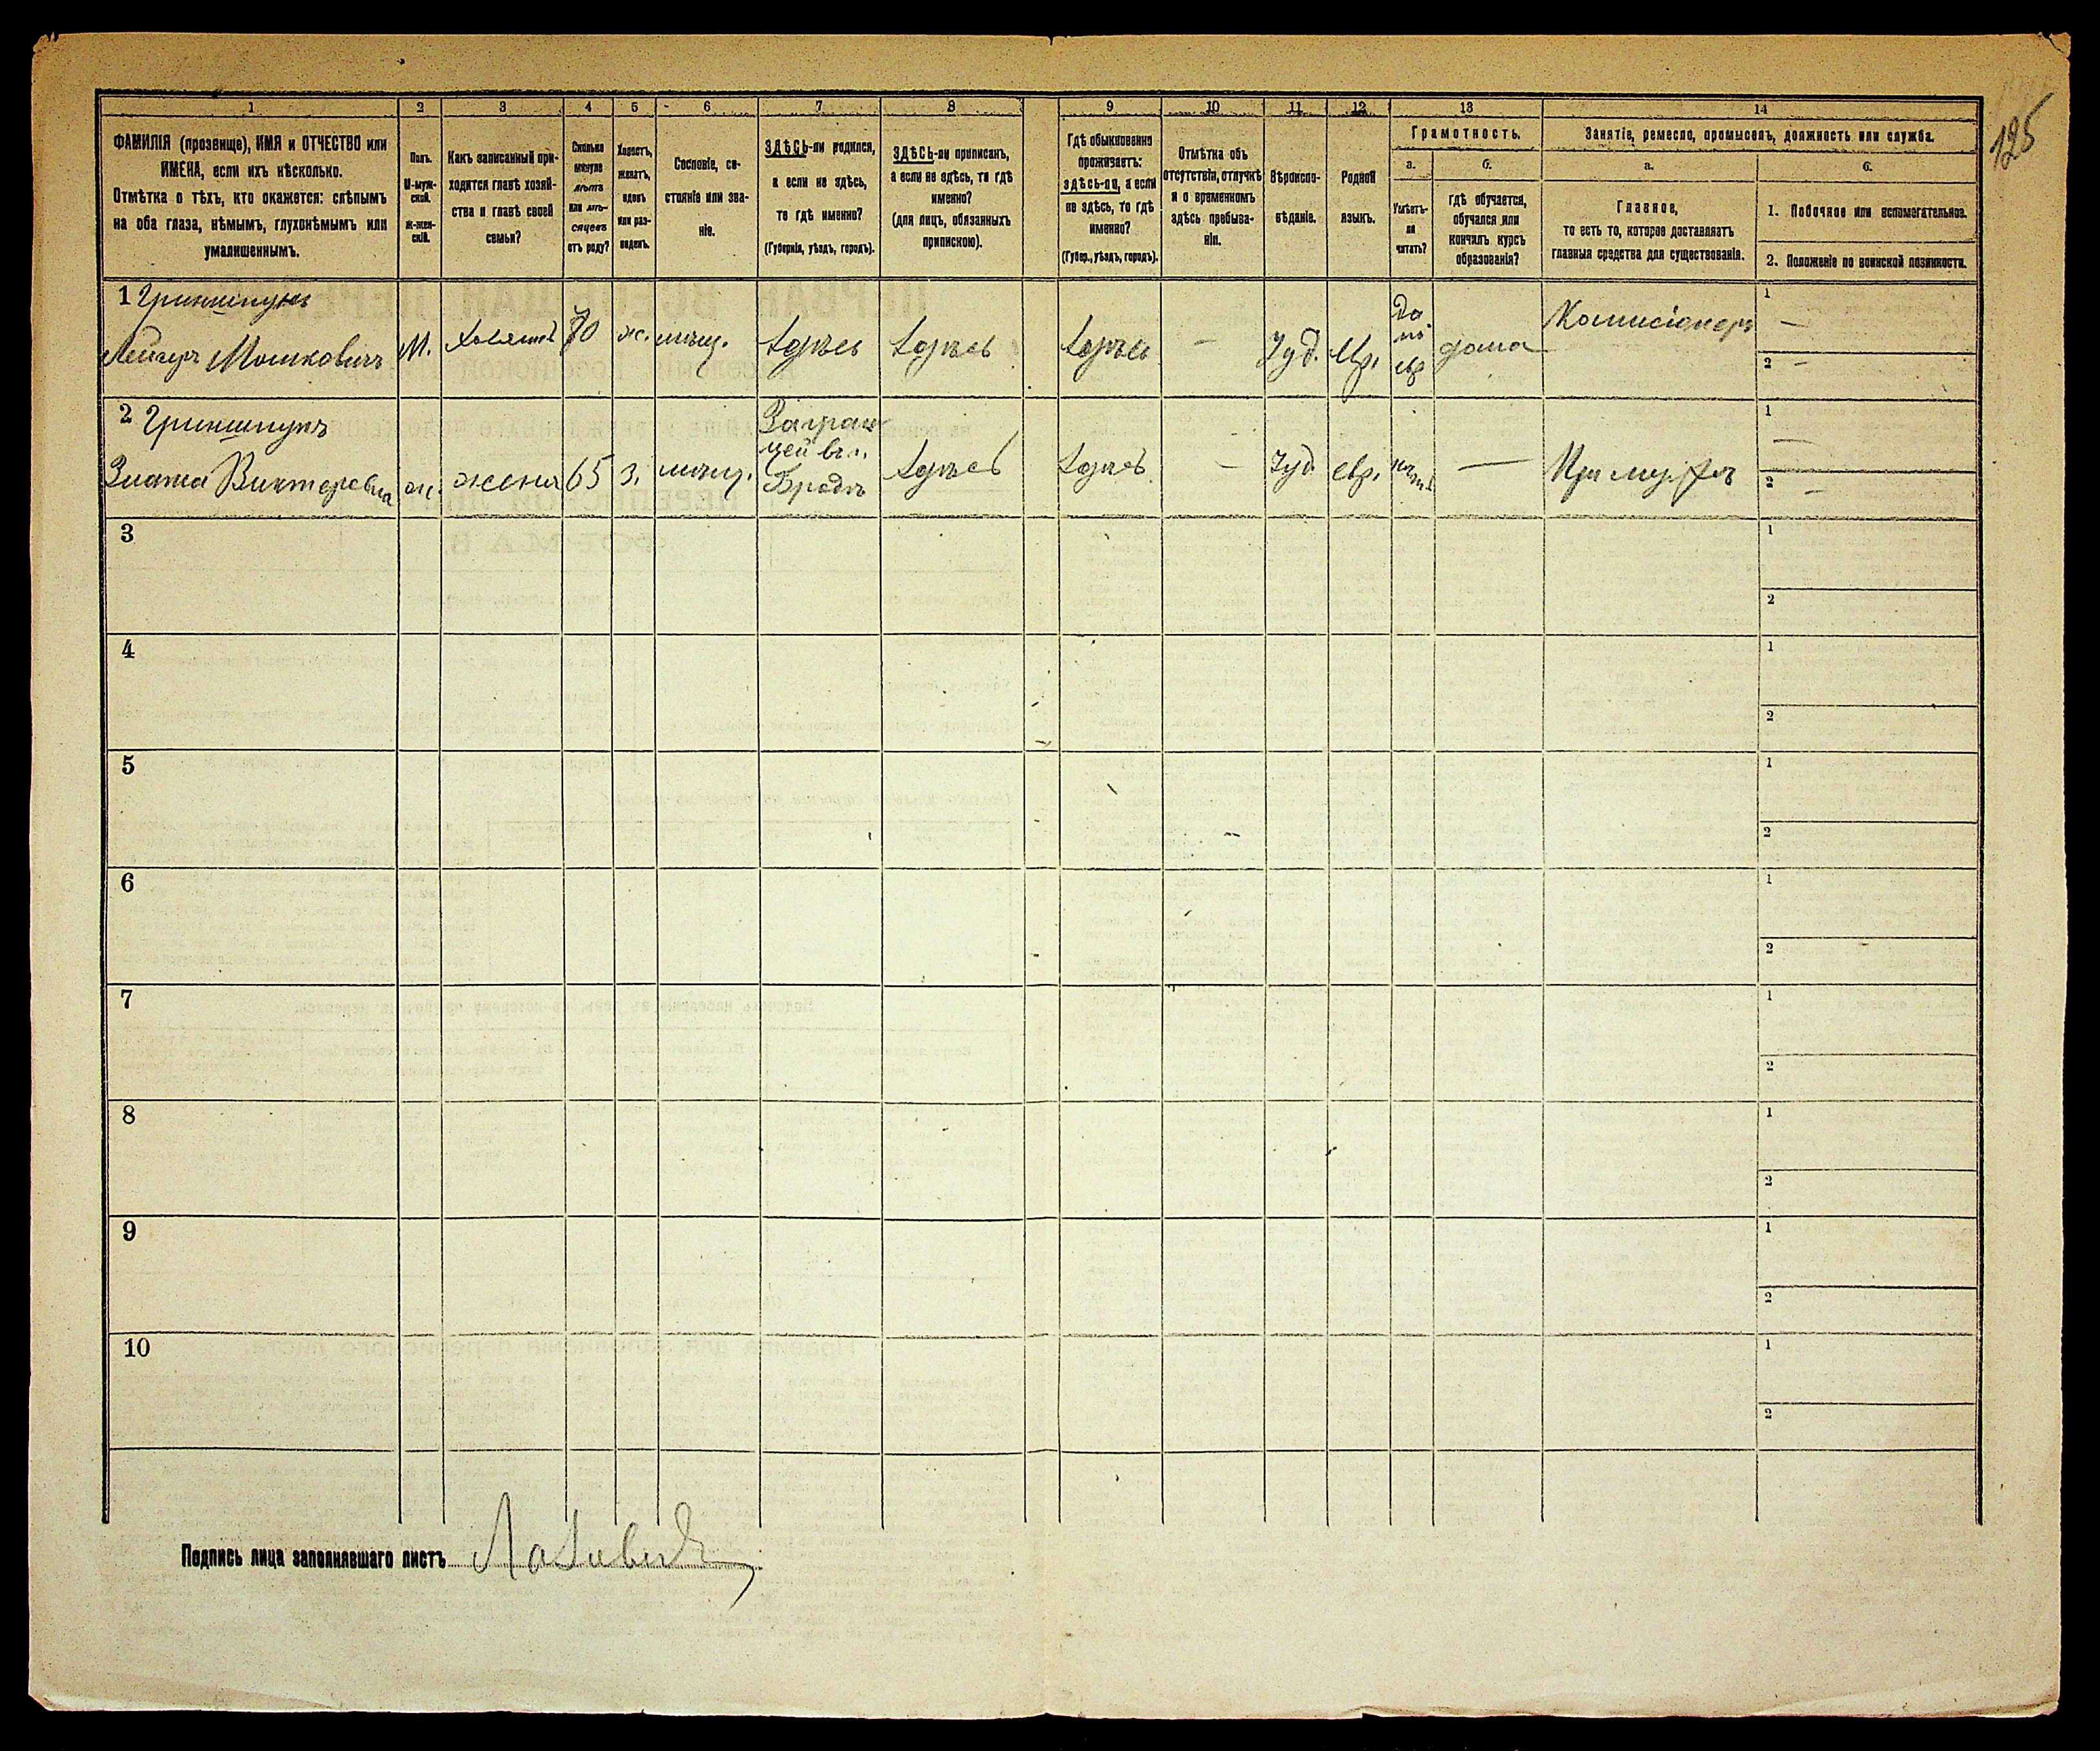 125
1 2 3 4 5 6 7 8 9 10 11 12 13 14
ФАМИЛІЯ (прозвище), ИМЯ и ОТЧЕСТВО или
ИМЕНА, если ихъ нѣсколько.
Отмѣтка о тѣхъ, кто окажется: слѣпымъ
на оба глаза, нѣмымъ, глухонѣмымъ или
умалишеннымъ.
Полъ.
М-муж-
ской.
ж-жен-
скій.
Какъ записанный при-
ходится главѣ хозяй-
ства и главѣ своей
семьи?
Сколько
минуло
лѣтъ
или мѣ-
сяцевъ
отъ роду?
Холостъ,
женатъ,
вдовъ
или раз-
веденъ.
Сословіе, со-
стояніе или зва-
ніе.
ЗДѢСЬ-ли родился,
а если не здѣсь,
то гдѣ именно?
(Губернія, уѣздъ, городъ).
ЗДѢСЬ-ли приписанъ,
а если не здѣсь, то гдѣ
именно?
(для лицъ, обязанныхъ
припискою).
Гдѣ обыкновенно
проживаетъ:
здѣсь-ли, а если
не здѣсь, то гдѣ
именно?
(Губер., уѣздъ, городъ).
Отмѣтка объ
отсутствіи, отлучкѣ
и о временномъ
здѣсь пребыва-
ніи.
Вѣроиспо-
вѣданіе.
Родной
языкъ.
Грамотность.
а.
Умѣетъ-
ли
читать?
б.
гдѣ обучается,
обучался или
кончилъ курсъ
образованія?
Занятіе, ремесло, промыселъ, должность или служба.
а.
Главное,
то есть то, которое доставляетъ
главныя средства для существованія.
б.
1. Побочное или вспомогательное.
2. Положеніе по воинской повинности.
1 Гриншпунъ
Лейзеръ Мошковичъ
м. хозяинъ 70 ж. мѣщ. здѣсь здѣсь здѣсь — Іуд. Евр.
да
по
евр
дома
Комисіонеръ
1 —
2 —
2 Гриншпунъ
Злата Викторовна
ж. жена 65 з. мѣщ.
Бродъ
здѣсь здѣсь — Іуд. евр. — При мужѣ
1 —
2 —
3
1
2
4
1
2
5
1
2
6
1
2
7
1
2
8
1
2
9
1
2
10
1
2
Подпись лица заполнявшаго листъ